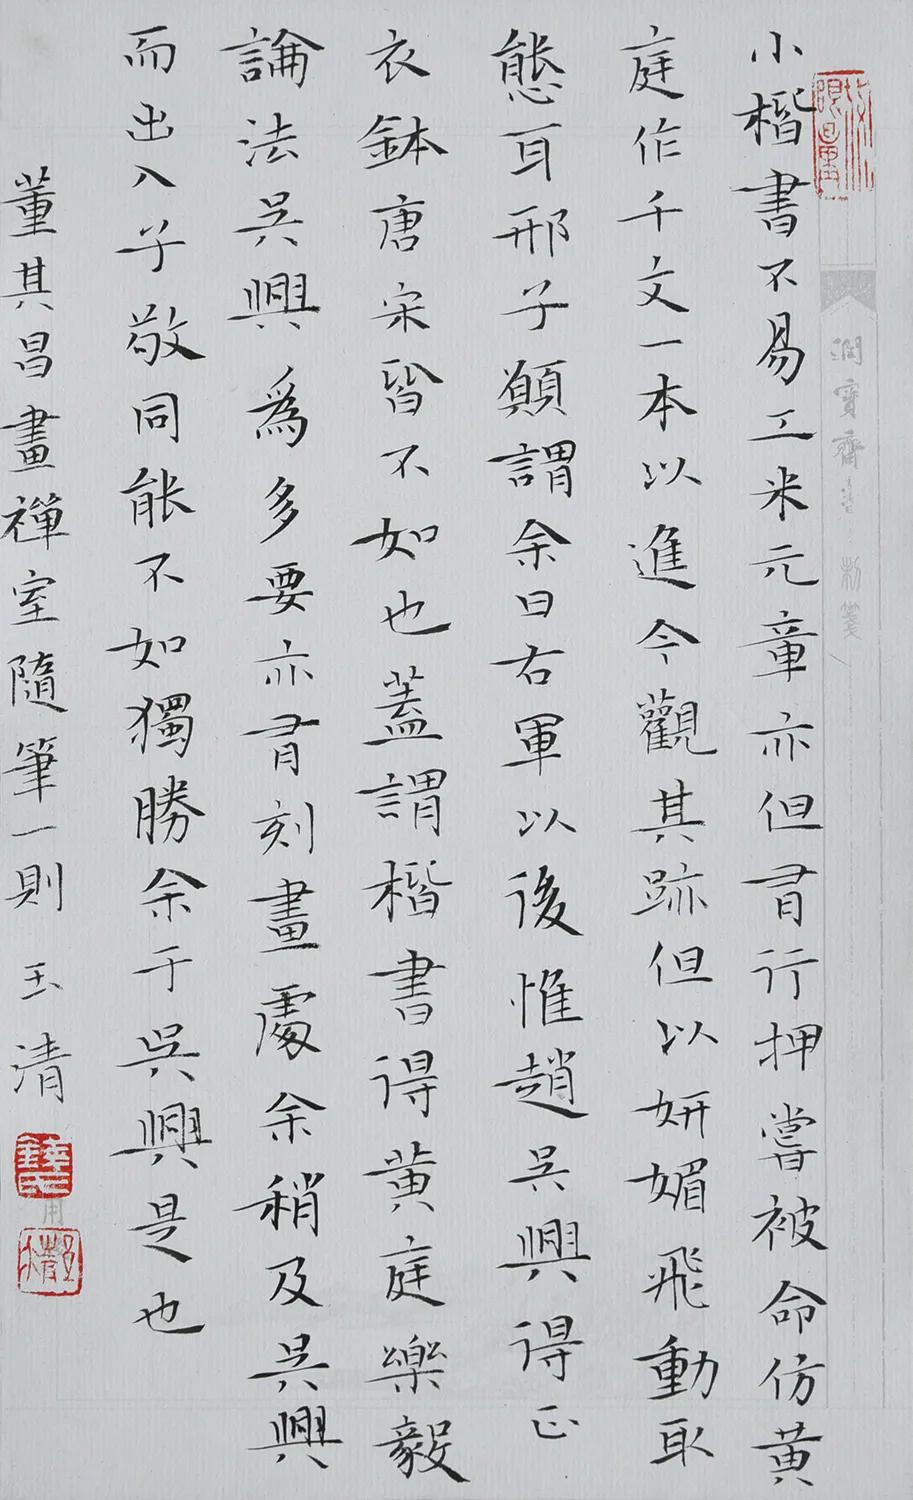 小楷書不易工米元章亦但有行押嘗被命仿黃
庭作千文一本以進今觀其跡但以妍媚飛動取
態耳邢子願謂余曰右軍以後惟趙吳興得正
衣鉢唐宋皆不如也蓋謂楷書得黃庭樂毅
論法吳興爲多要亦有刻畫處余稍及吳興
而出入子敬同能不如獨勝余于吳興是也
董其昌畫禪室隨筆一則 玉清